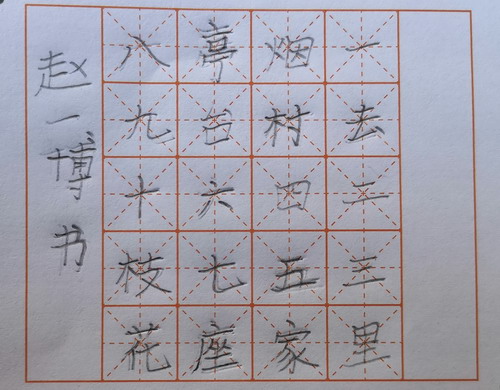 一去二三里
烟村四五家
亭台六七座
八九十枝花
赵一博书